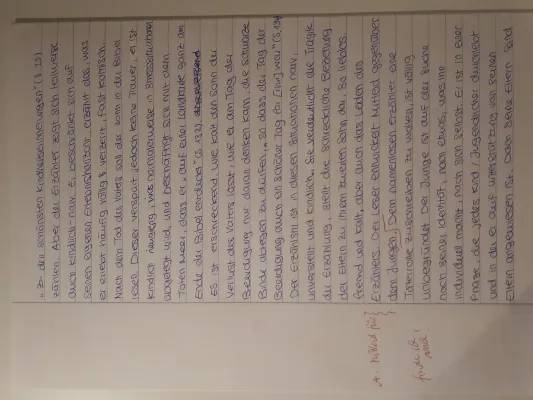 „Zu den schönsten Kindheitserinnerungen" (S. 15)
zählen. Aber der Erzähler zeigt sich teilweise
auch kindlich naiv. Er beschränkt sich auf
seinen eigenen Erfahrungshorizont, erzählt das, was
er erlebt häufig völlig verzerrt, fast komisch.
Nach dem Tod des Vaters soll der Sohn in der Bibel
lesen. Dieser verspürt jedoch keine Trauer, er ist
kindlich neugierig, was normalerweise in Stresssituationen
abgelegt wird, und beschäftigt sich mit dem
Toten Meer, dass er „auf einer Landkarte ganz am
Ende der Bibel entdeckt" (S. 132)
Es ist erschreckend wie kalt den Sohn der
Verlust des Vaters lässt, wie er am Tag der
Beerdigung nur daran denken kann, die schwarze
Binde ablegen zu dürfen, „so dass der Tag der
Beerdigung auch ein schöner Tag für [ihn] war" (S. 134)
Der Erzähler ist in diesen Situationen naiv,
unverstellt und kindlich. Sie verdeutlicht die Tragik
der Erzählung, stellt die schreckliche Beziehung
der Eltern zu ihrem zweiten Sohn dar. So lieblos,
fremd und kalt, aber auch das Leiden des
Erzählers. Der Leser entwickelt Mitleid gegenüber
dem Jungen. Dem namenlosen Erzähler eine
Täterrolle zuzuschreiben zu wollen, ist völlig
unbegründet. Der Junge ist auf der Suche
nach seiner Identität, nach etwas, was ihn
individuell macht, nach sich selbst. Er ist in einer
Phase, die jedes Kind / Jugendlicher durchlebt
und in der er auf Unterstützung von seinen
Eltern angewiesen ist. Doch seine Eltern sind